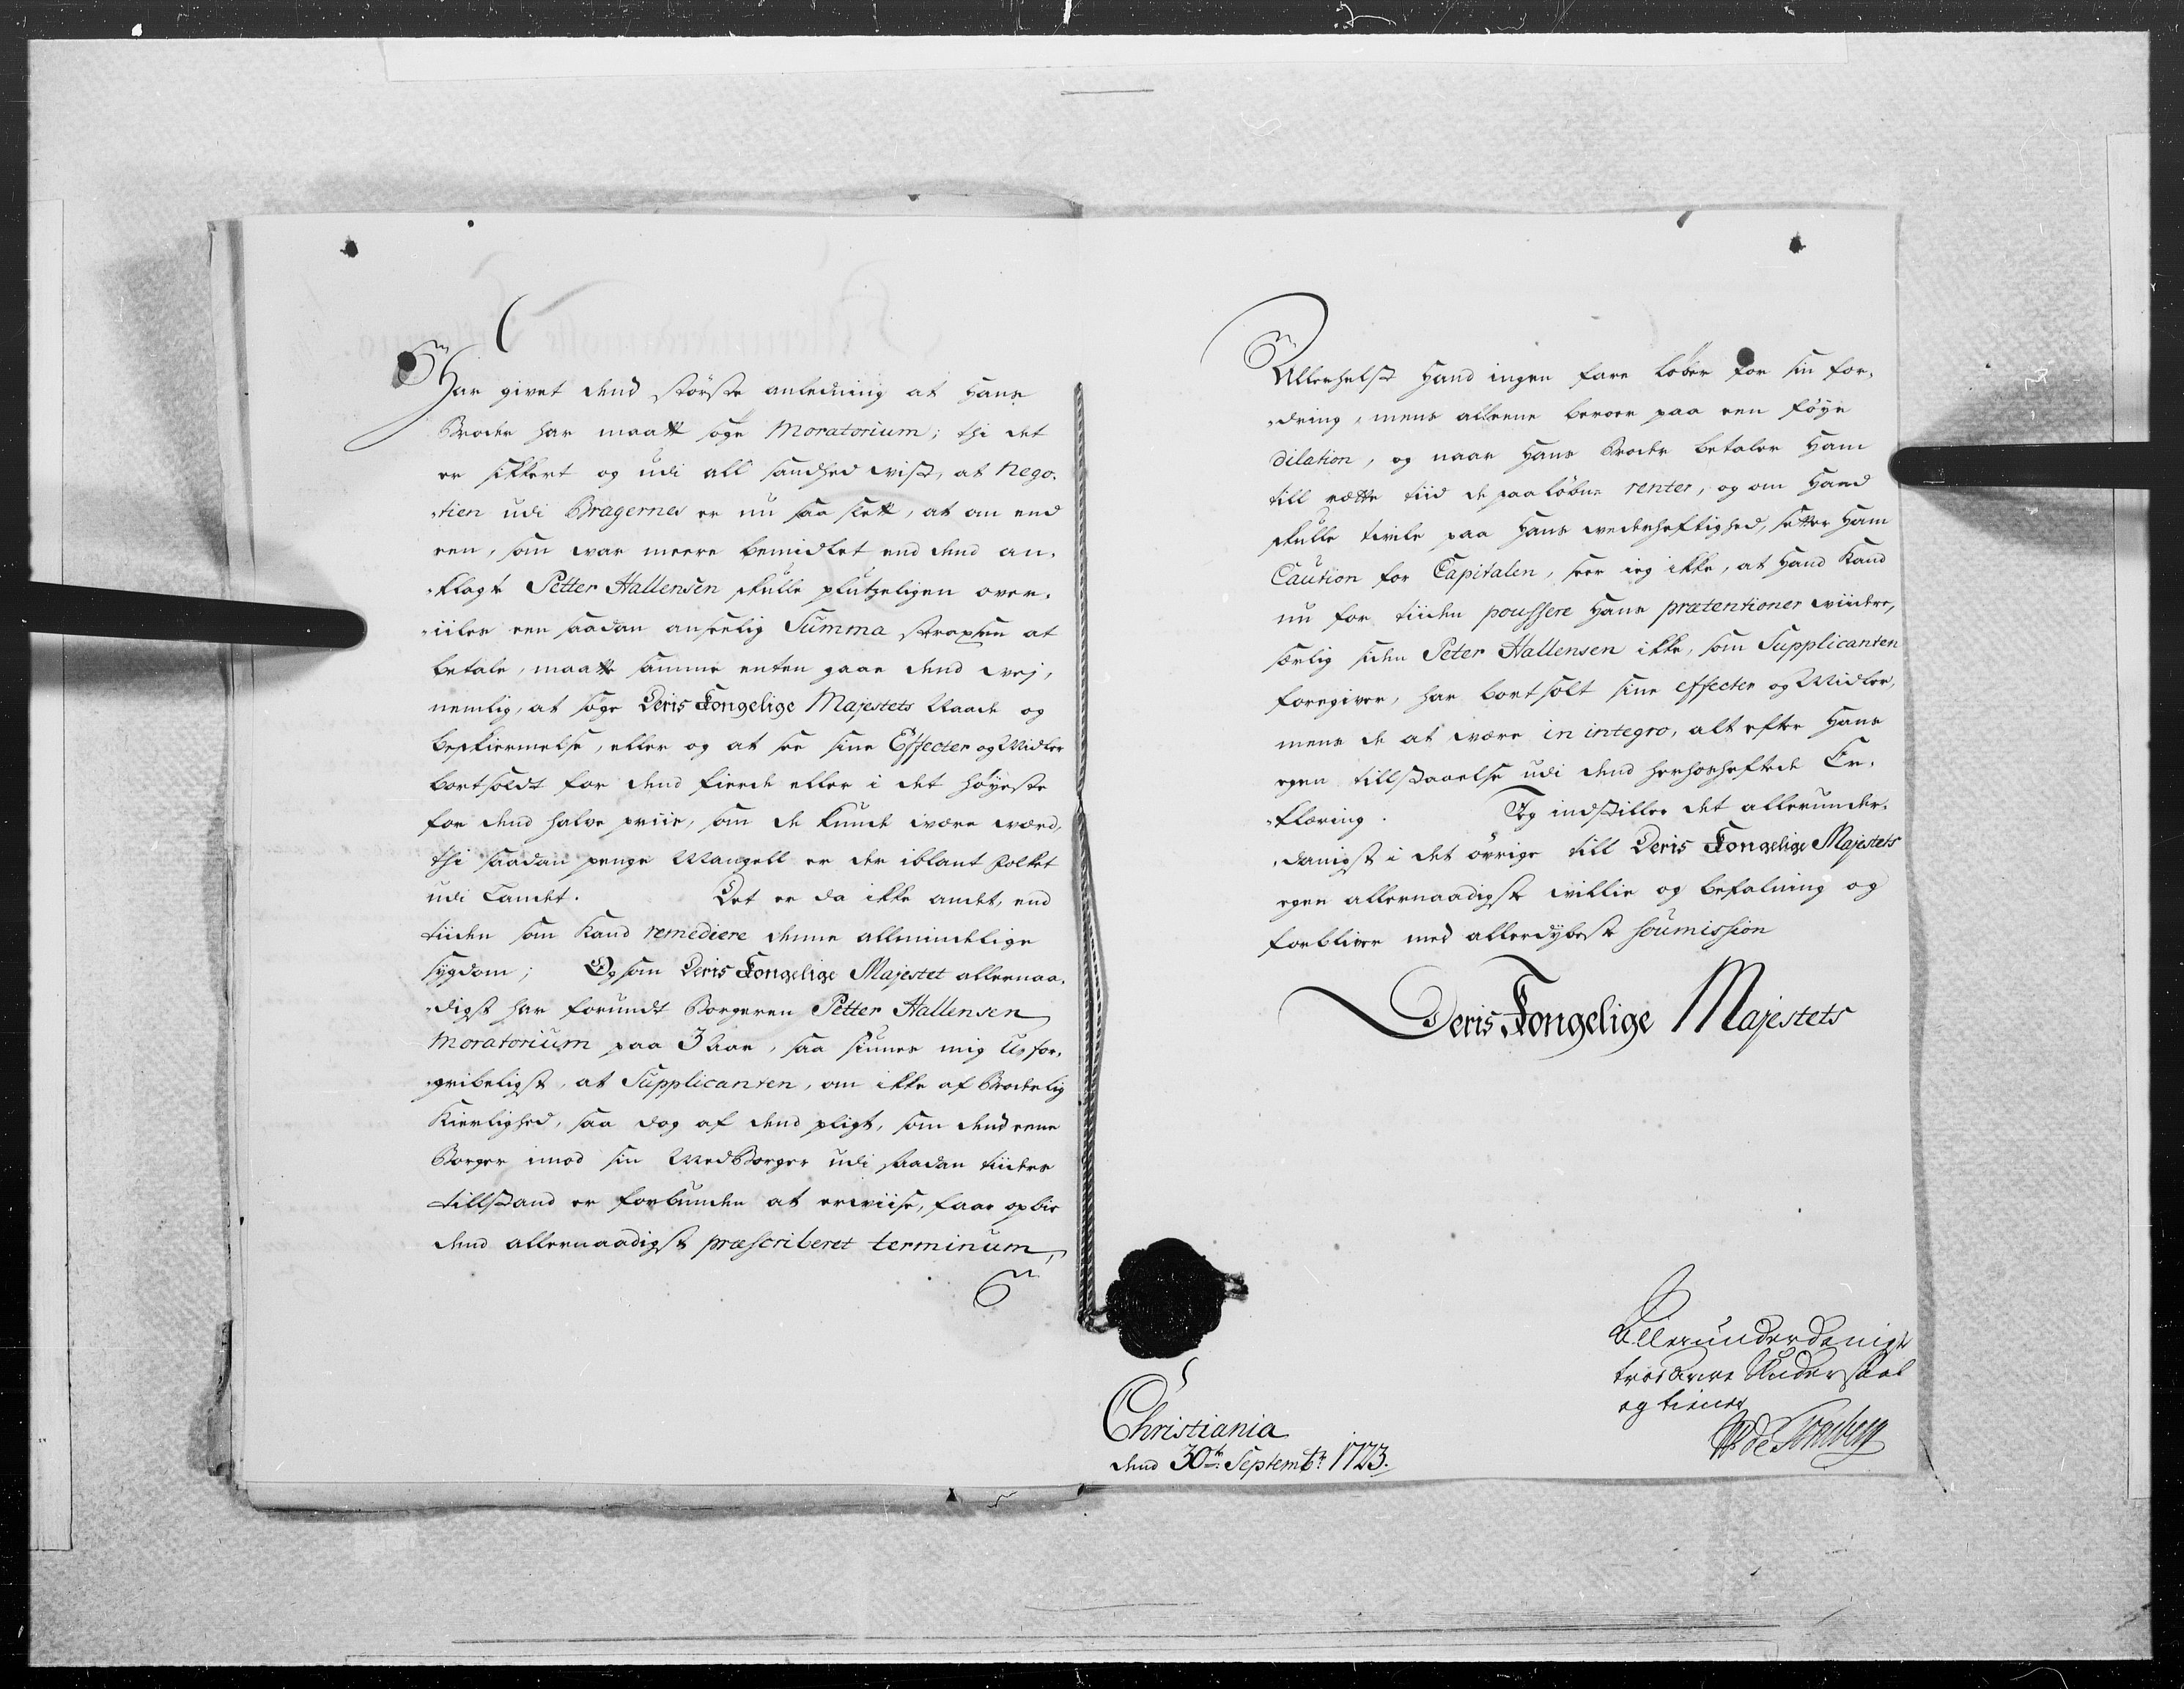 Har givet dend störste anledning at Hans
Broder har maatt søge Moratorium; thi det
er sikkert og udi all sandhed vist, at nego-
-tien udi Bragernes er nu saa slett, at om end
een, som var meere bemidlet end dend an-
-klagte Petter Hallensen skulle plutzeligen over-
-iiles een saadan anseelig Summa straxsen at
betale, maatte samme enten gaae dend vej,
nemlig, at søge Deris Kongelige Majestets Naade og
beskiermelse, eller og at see sine Effecter og Midler
bortsoldt for dend fierde eller i det høyeste
for dend halve priis, som de kunde være værd,
thi saadan penge Mangell er der iblant folket
udi Landet. Det er da ikke andet, end
tiiden som kand remediere denne allmindelige
sygdom; Og som Deris Kongelige Majestet allernaa-
-digst har forundt Borgeren Petter Hallensen
Moratorium paa 3 Aar, saa siunes mig Ufor-
-gribeligst, at Supplicanten, om ikke af Broderlig
Kierlighed, saa dog af dend pligt, som dend eene
Borger imod sin MedBorger udi saadan tiiders
tillstand er forbunden at erviise, faar opbie
dend allernaadigst præscriberet terminum,
Allerhelst Hand ingen fare løber for sin for-
-dring, mens alleene beroer paa een føye
dilation, og naar Hans Broder betaler Ham
till rætte tiid de paaløbne renter, og om Hand
skulle tvile paa Hans vederheftighed, setter Ham
Caution for Capitalen, seer ieg ikke, at Hand kand
nu for tiiden poussere Hans prætentioner viidere,
særlig siden Peter Hallensen ikke, som Supplicanten
foregiver, har bortsolt sine effecter og Midler,
mens de at være in integro, alt efter Hans
egen tillstaaelse udi dend herhosheftede Er-
-klæring. Jeg indstiller det allerunder-
-danigst i det øvrige till Deris Kongelige Majestets
egen allernaadigste villie og befalning og
forbliver med allerdybeste soumission
Deris Kongelige Majestets
Allerunderdanigst
troeskyldigste Undersaat
og tiener
Christiania
dend 30te Septembr 1723.